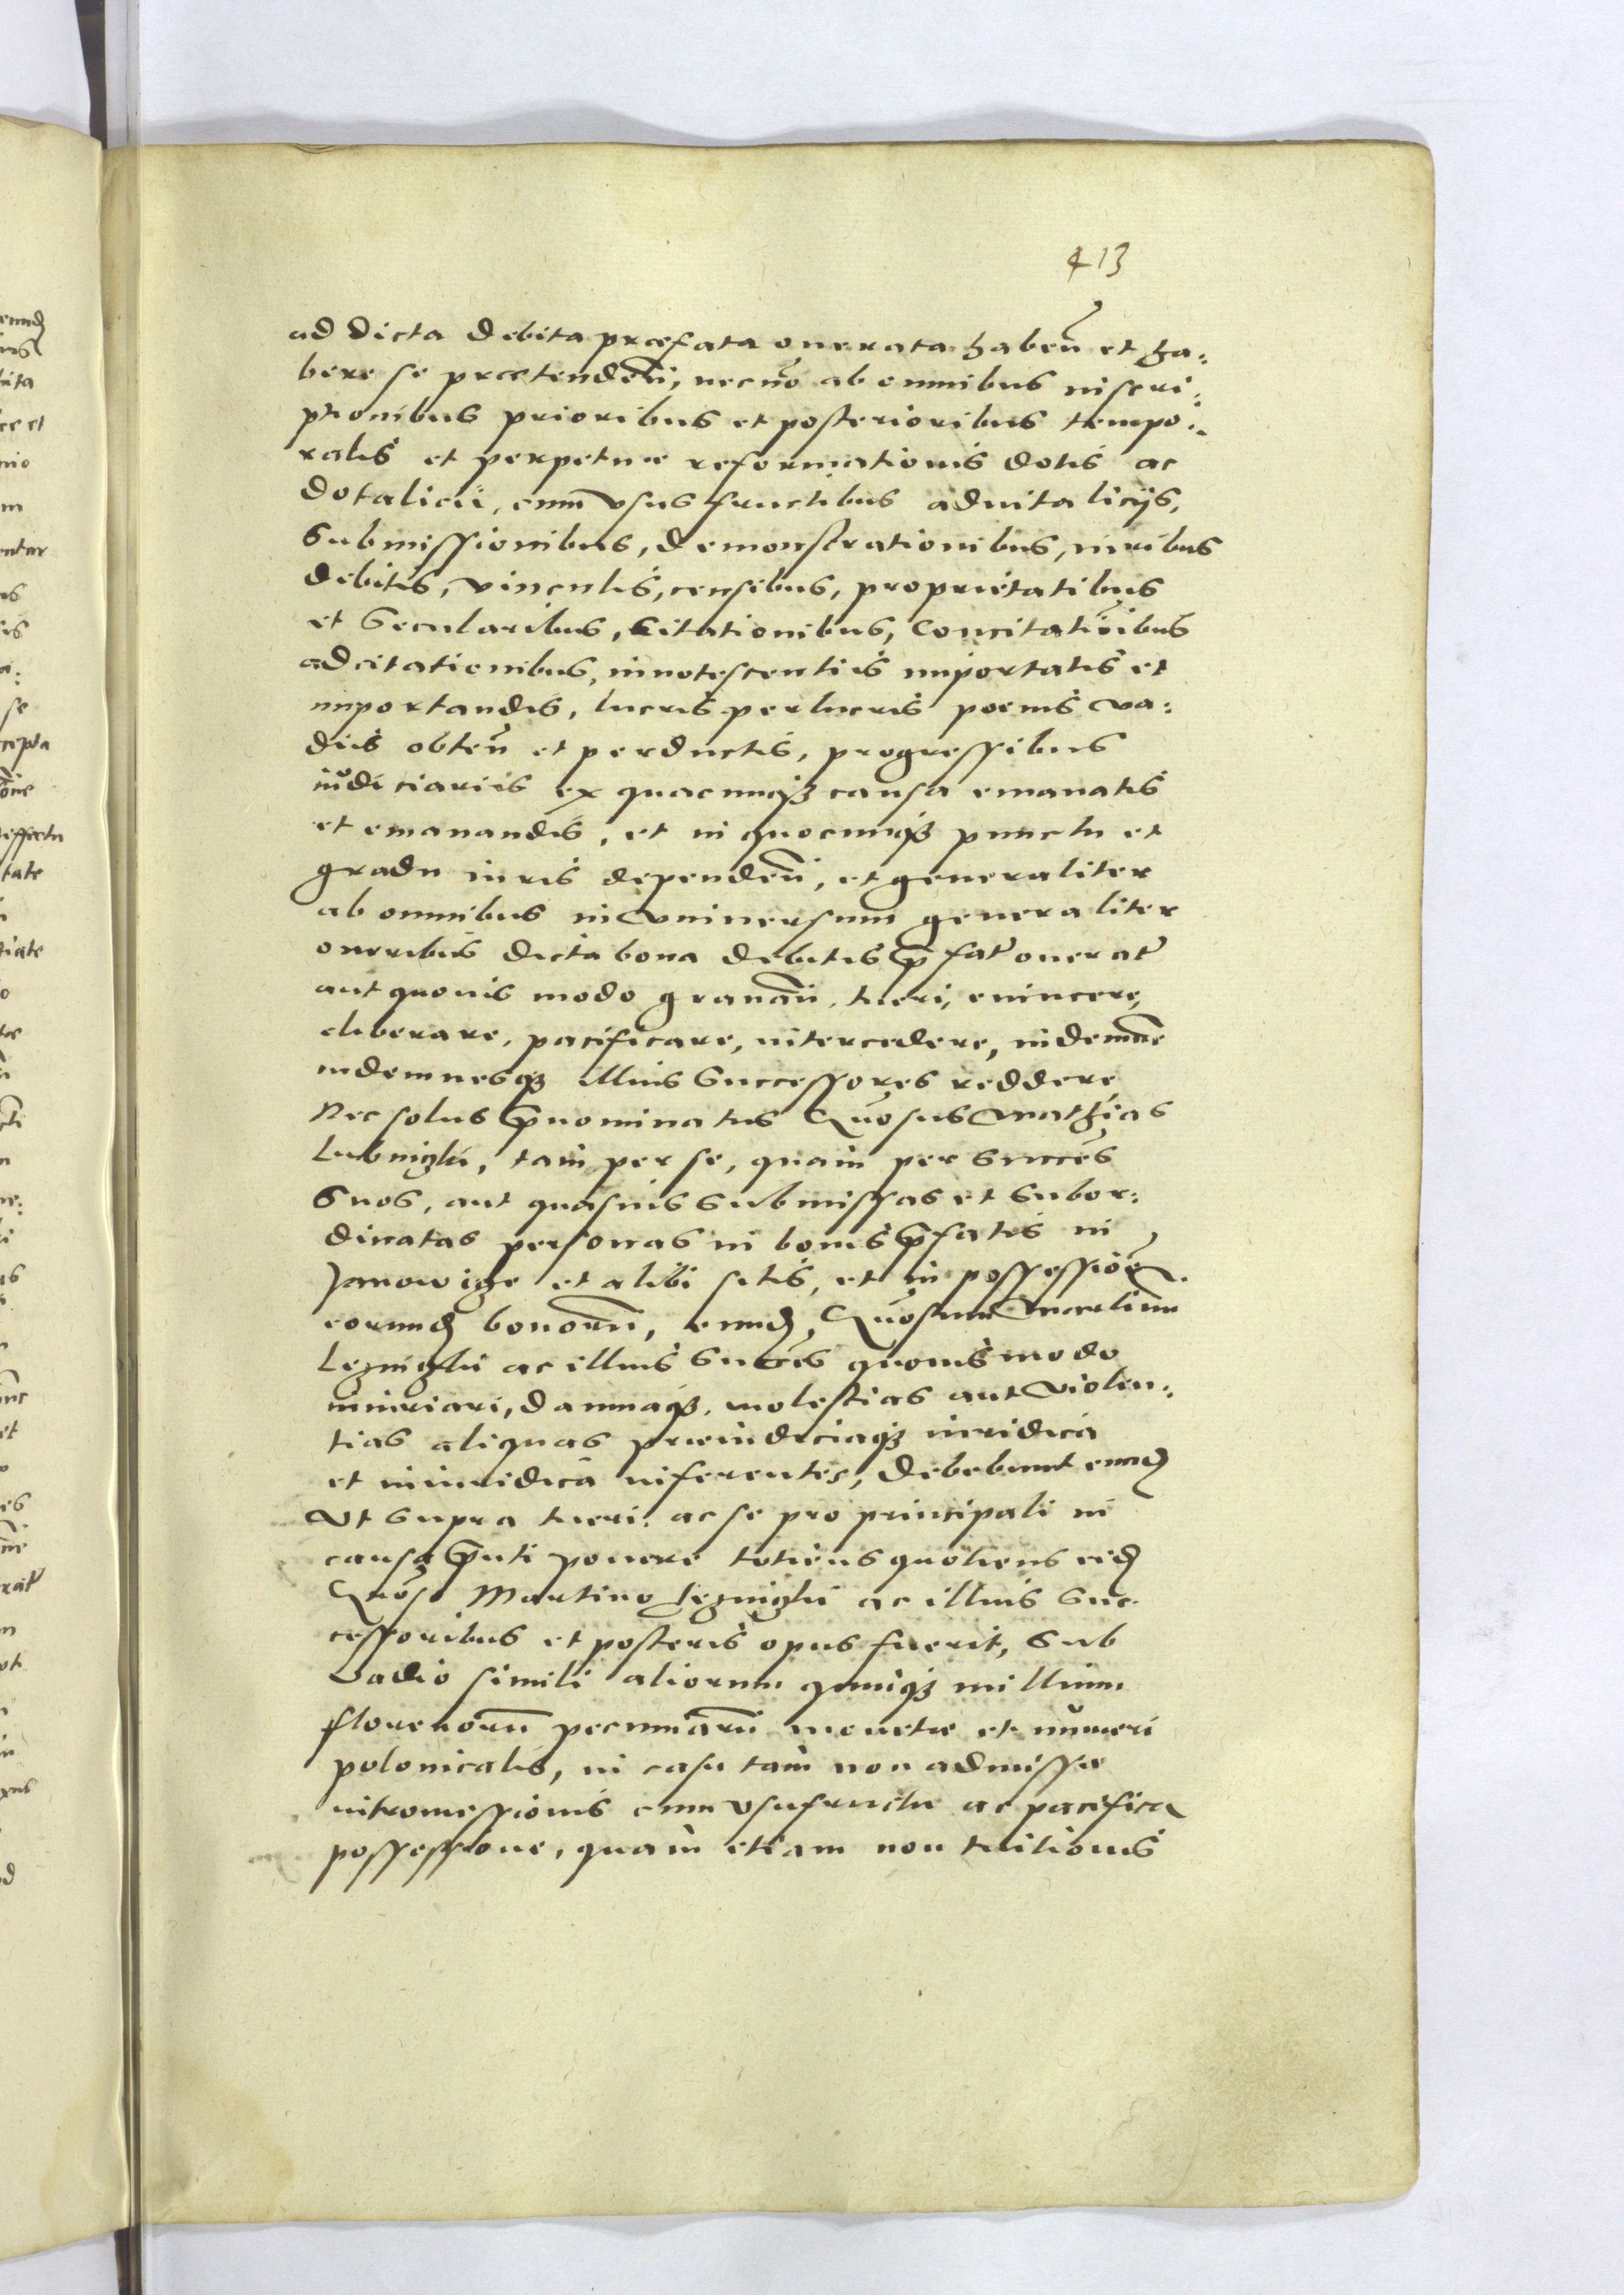 413
ad dicta debita praefata onerata habeñ et ha:
bere se praetendeñ, necño ab omnibus inscri:
ptionibus prioribus et posterioribus tempo:
ralis et perpetuae reformationis dotis ac
dotalicii, cum vsus fructibus aduitalicijs,
Submissionibus, demonstrationibus, iuribus
debitis, vinculis, censibus, proprietatibus
et Secularibus, citationibus, Concitationibus
adcitationibus, innotescentiis importatis et
importandis, lucris perlucris poenis va:
diis obteñ et perductis, progressibus
iudiciariis ex quacunqȝ causa emanatis
et emanandis, et in quocunqȝ punctu et
gradu iuris dependeñ, et generaliter
ab omnibus in vniuersum generaliter
oneribus dicta bona debitis p̃fat̃ onerat̃
aut quouis modo grauañ, tueri, euincere,
eliberare, pacificare, intercedere, indemnẽ
indemnesqȝ illius Successores reddere,
Nec solus p̃nominatus Gñosus Mathias
Lubinshi, tam per se, quam per Succes̃
Suos, aut quasuis Submissas et Subor:
dinatas personas in bonis p̃fatis in
Janowicze et alibi sitis, et in possessioẽ
eorund̃ bonorũ, eund̃, Gñosum Martinum
ac illius Succes̃ quouis modo
iniuriari, damnaqȝ, molestias aut violen:
tias aliquas praeiudiciaqȝ iuridica
et iniuridica inferentes, debebunt eund̃
Vt Supra tueri, ac se pro principali in
causa p̃nti ponere totiens quotiens eid̃
Gños̃o Martino ac illius Suc
cessoribus et posteris opus fuerit, Sub
Vadio simili aliorum quinqȝ millium
florenorũ pecuniarũ monetae et numeri
polonicalis, in casu tam non admissae
intromissionis cum vsufructu ac pacifica
possessione, quam etiam non tuitionis